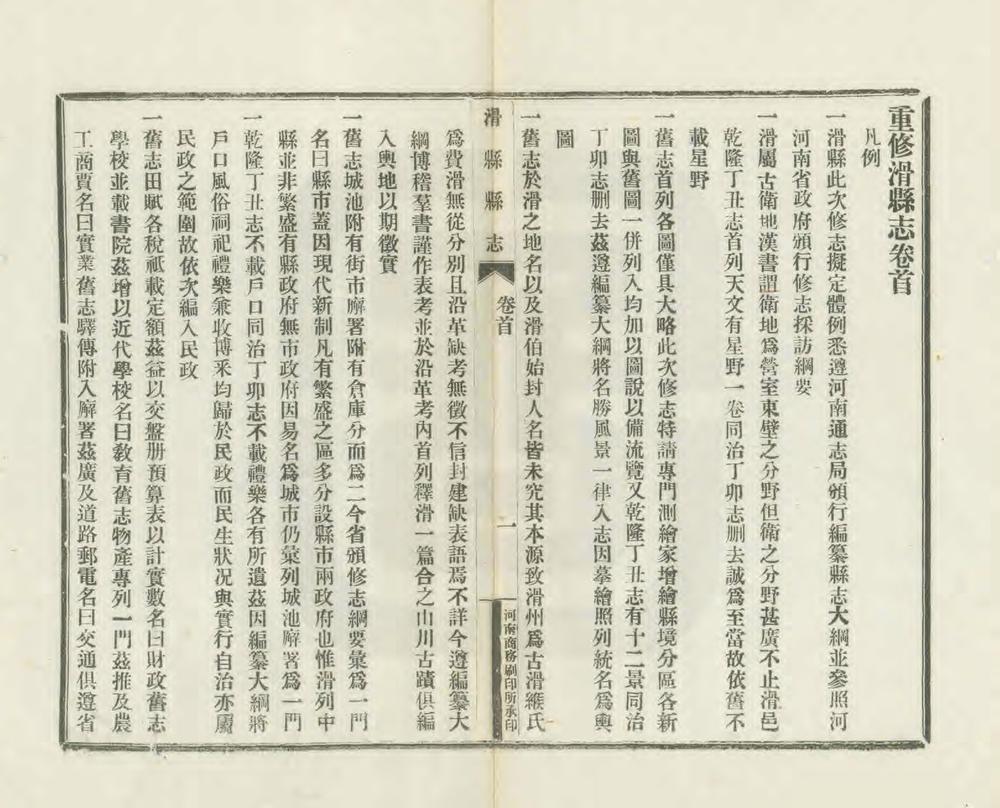 重修滑縣志卷首
凡例
一滑縣此次修志擬定體例悉遵河南通志局頒行編纂縣志大綱並參照河
河南省政府頒行修志採訪綱要
一滑屬古衛地漢書謂衛地爲營室東壁之分野但衛之分野甚廣不止滑邑
乾隆丁丑志首列天文有星野一卷同治丁卯志删去誠爲至當故依舊不
載星野
一舊志首列各圖僅具大略此次修志特請專門測繪家增繪縣境分區各新
圖與舊圖一併列入均加以圖說以備流覽又乾隆丁丑志有十二景同治
丁卯志删去茲遵編纂大綱將名勝風景一律入志因摹繪照列統名爲輿
圖
一舊志於滑之地名以及滑伯始封人名皆未究其本源致滑州爲古滑緱氏
滑縣志
卷首
一
河南商務刷印所承印
爲費滑無從分別且沿革缺考無徵不信封建缺表語焉不詳今遵編纂大
綱博稽羣書謹作表考並於沿革考內首列釋滑一篇合之山川古蹟俱編
入輿地以期徵實
一舊志城池附有街市廨署附有倉庫分而爲二今省頒修志綱要彙爲一門
名曰縣市蓋因現代新制凡有繁盛之區多分設縣市兩政府也惟滑列中
縣並非繁盛有縣政府無市政府因易名爲城市仍彙列城池廨署爲一門
一乾隆丁丑志不載戶口同治丁卯志不載禮樂各有所遺茲因編纂大綱將
戶口風俗祠祀禮樂兼收博釆均歸於民政而民生狀况與實行自治亦屬
民政之範圍故依次編入民政
一舊志田賦各稅祇載定額茲益以交盤册預算表以計實數名曰財政舊志
學校並載書院茲增以近代學校名曰敎育舊志物產專列一門茲推及農
工商賈名曰實業舊志驛傳附入廨署茲廣及道路郵電名曰交通俱遵省